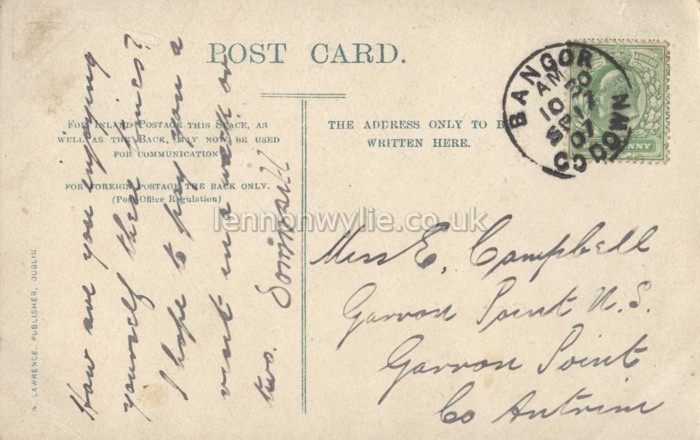 POST CARD.
FOR INLAND POSTAGE THIS SPACE, AS
WELL AS THE BACK, MAY NOW BE USED
FOR COMMUNICATION.
FOR FOREIGN POSTAGE THE BACK ONLY.
(Post Office Regulation)
THE ADDRESS ONLY TO BE
WRITTEN HERE.
BANGOR
CO DOWN
AM
10 20
SP 17
07
PENNY
How are you enjoying
yourself these times?
I hope to pay you a
visit in a week or
two.
Miss E. Campbell
Garron Point N.S.
Garron Point
Co Antrim
W. LAWRENCE, PUBLISHER, DUBLIN.
lennonwylie.co.uk